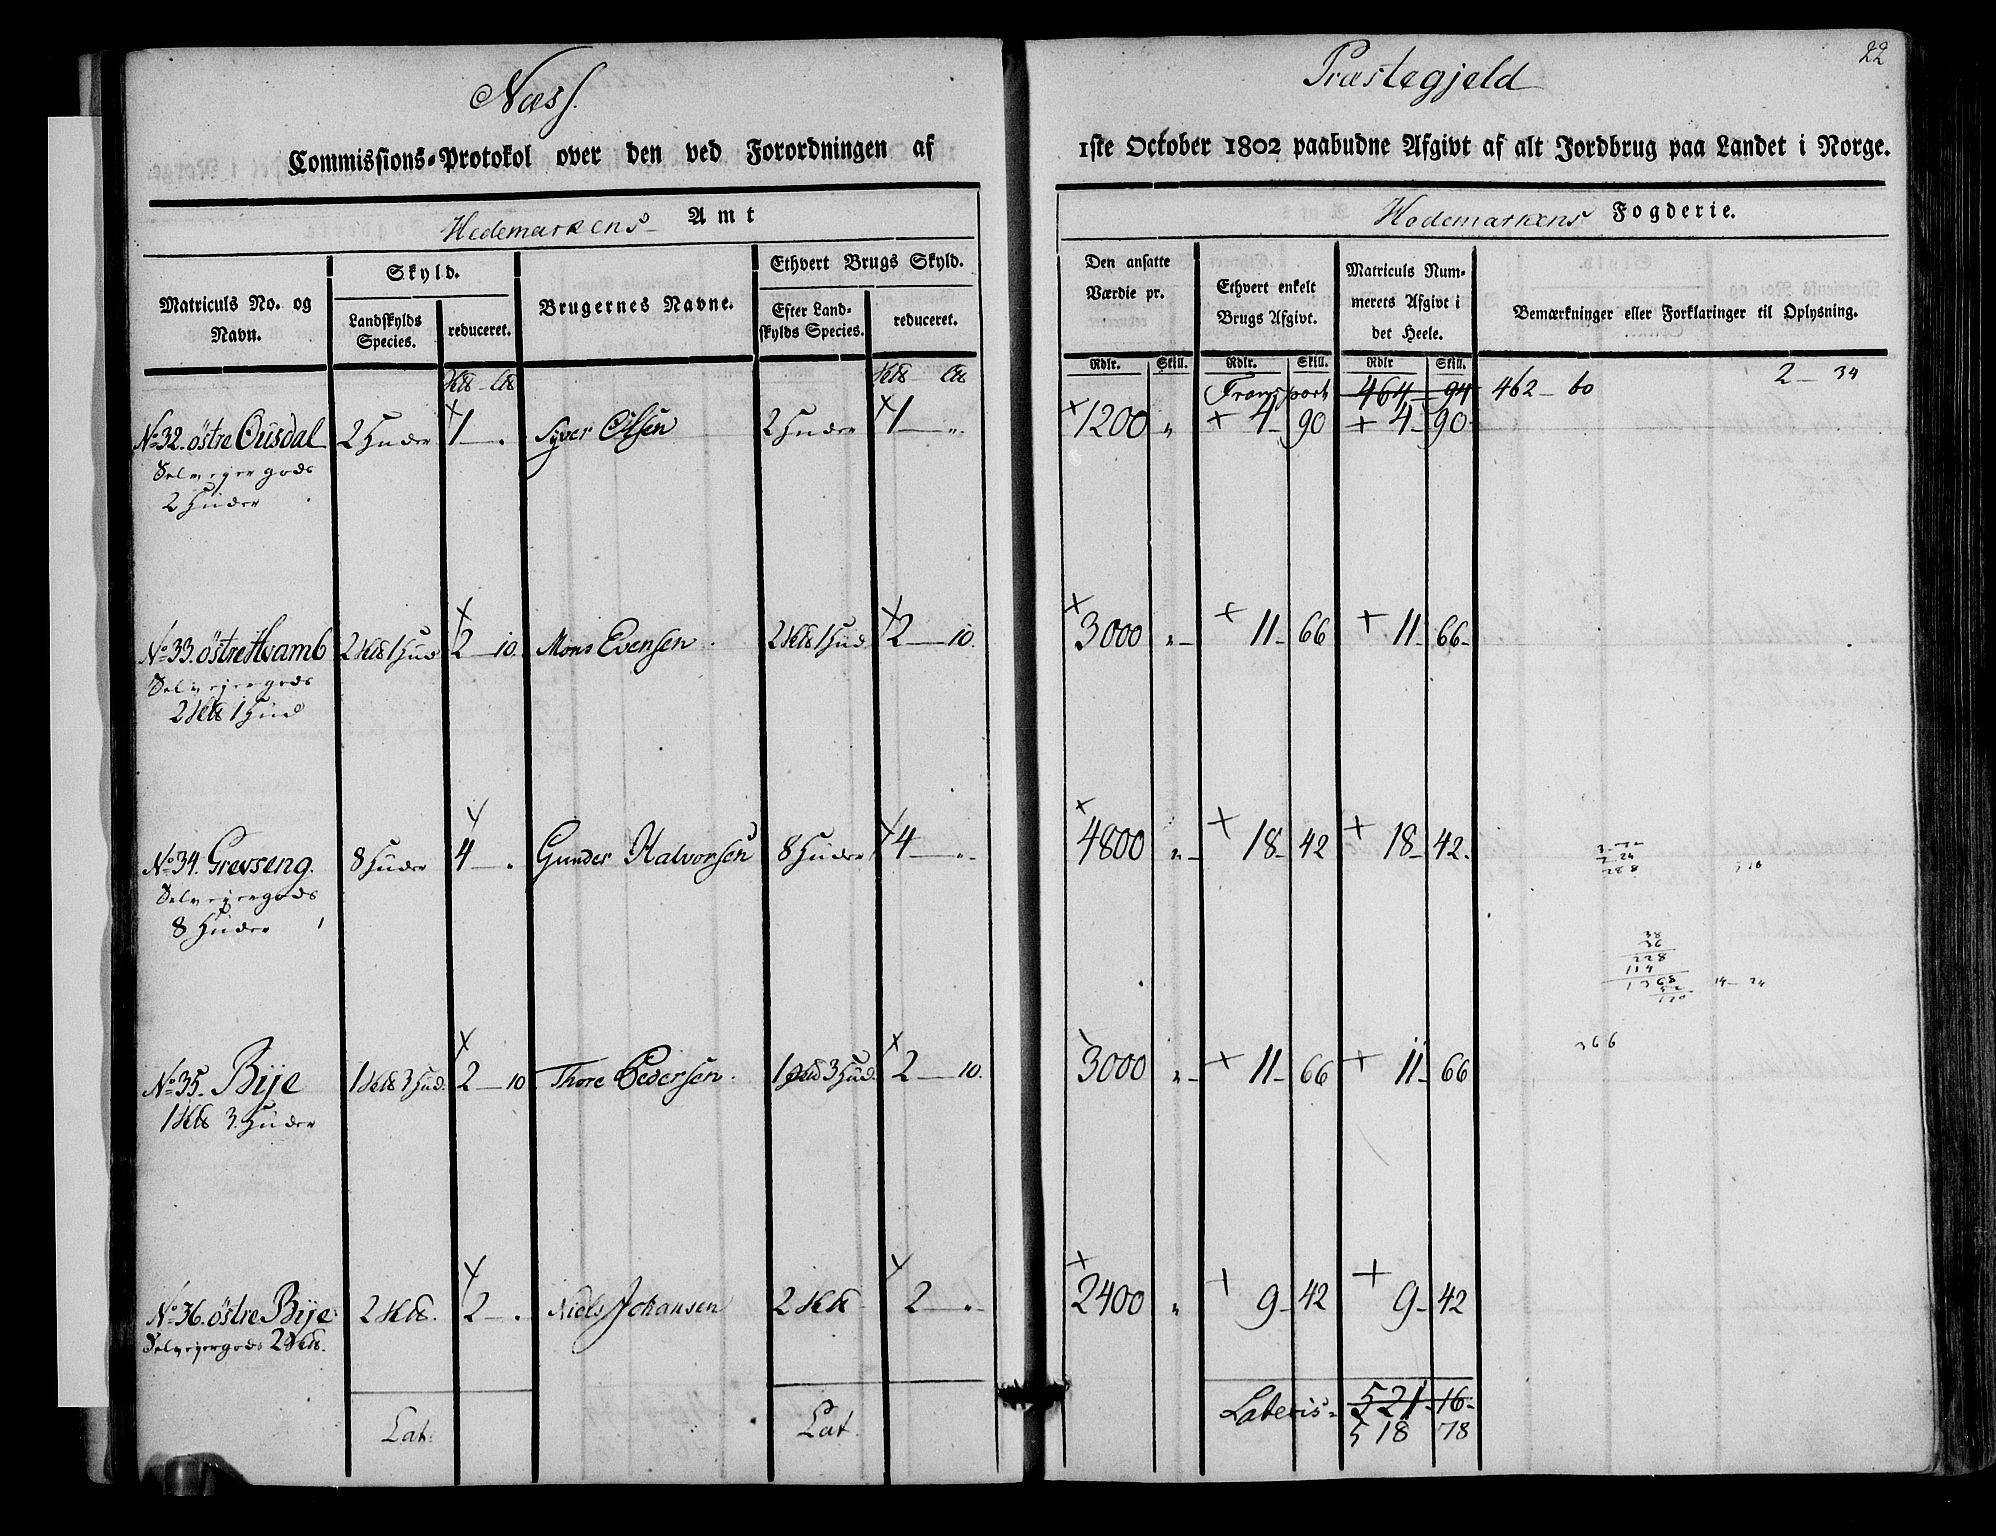 Næss.
Commissions-Protokol over den ved Forordningen af
Hedemarkens Amt
Matriculs No. og Navn.
Skyld.
Landskylds Species.
reduceret.
Brugernes Navne.
Ethvert Brugs Skyld.
Efter Landskylds Species.
reduceret.
No 32. östre Ousdal 2 Huder 1 — „ Syver Olsen 2 Huder 1 — „
Selveyergods
2 Huder
No 33. östre Hvamb 2 1 Hud 2 — 10. Mons Evensen 2 1 Hud 2 — 10.
Selveyergods
2 1 Hud
No 34. Grevseng. 8 Huder 4 — „ Gunder Halvorsen 8 Huder 4 — „
Selveyergods
8 Huder
No 35. Bije 1 3 Hud. 2 — 10 Thore Pedersen. 1 3 Hud. 2 — 10.
1 3. Huder
No 36. östre Bije 2 2 — „ Niels Johansen 2 2 — „
Selveyergods 2
Lat: Lat.
Præstegjeld
22
1ste October 1802 paabudne Afgivt af alt Jordbrug paa Landet i Norge.
Hedemarkens Fogderie.
Den ansatte Værdie pr.
Ethvert enkelt Brugs Afgivt.
Matriculs Nummerets Afgivt i det Heele.
Bemærkninger eller Forklaringer til Oplysning.
Rdlr. Skill. Rdlr. Skill. Rdlr Skill.
Transport 464 94 462 — 60 2 — 34
1200 „ 4 — 90 4 — 90
3000 „ 11 — 66 11 — 66
4800 „ 18 — 42 18 — 42.
288
38
36
228
114
1368 14 — 24
120
3000 „ 11 — 66 11 — 66
366
2400 „ 9 — 42 9 — 42
Lateris 521 — 16
518 78